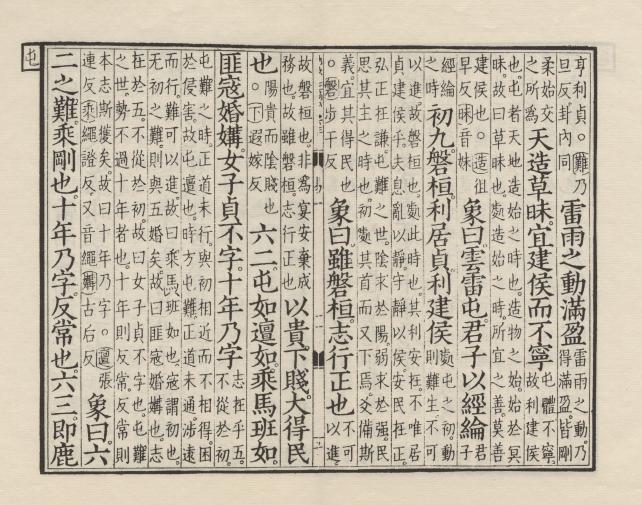 亨利貞。難乃
旦反卦内同
雷雨之動滿盈
雷雨之動乃
得滿盈皆剛
柔始交
之所爲
天造草昧宜建侯而不寧
屯體不寧
故利建侯
也屯者天地造始之時也造物之始始於冥
昧故曰草昧也處造始之時所宜之善莫善
建侯也。造徂
早反昧音妹
象曰雲雷屯君子以經綸
君
子
經綸
之時
初九磐桓利居貞利建侯
處屯之初動
則難生不可
以進故磐桓也處此時也其利安在不唯居
貞建侯乎夫息亂以靜守靜以侯安民在正
弘正在謙屯難之世陰求於陽弱求於強民
思其主之時也初處其首而又下焉爻備斯
義宜其得民也
。磐步干反
象曰雖磐桓志行正也
不可
以進
故磐桓也非爲宴安棄成
務也故雖磐桓志行正也
以貴下賤大得民
也
陽貴而陰賤也
。下遐嫁反
六二屯如邅如乘馬班如
匪寇婚媾女子貞不字十年乃字
志在乎五
不從於初
屯難之時正道未行與初相近而不相得困
於侵害故屯邅也時方屯難正道未通涉遠
而行難可以進故曰乘馬班如也寇謂初也
無初之難則與五婚矣故曰匪寇婚媾也志
在於五不從於初故曰女子貞不字也屯難
之世勢不過十年者也十年則反常反常則
本志斯獲矣故曰十年乃字。邅張
連反乘繩證反又音繩媾古后反
象曰六
二之難乘剛也十年乃字反常也六三即鹿
屯